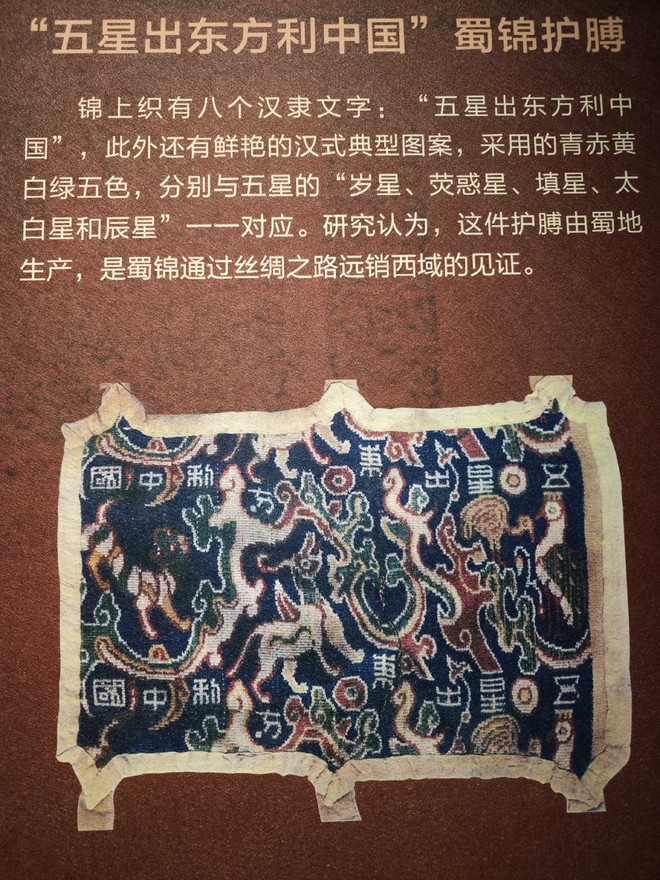 “五星出东方利中国”蜀锦护膊
锦上织有八个汉隶文字：“五星出东方利中
国”，此外还有鲜艳的汉式典型图案，采用的青赤黄
白绿五色，分别与五星的“岁星、荧惑星、填星、太
白星和辰星”一一对应。研究认为，这件护膊由蜀地
生产，是蜀锦通过丝绸之路远销西域的见证。
五星出東方利中國
五星出東方利中國